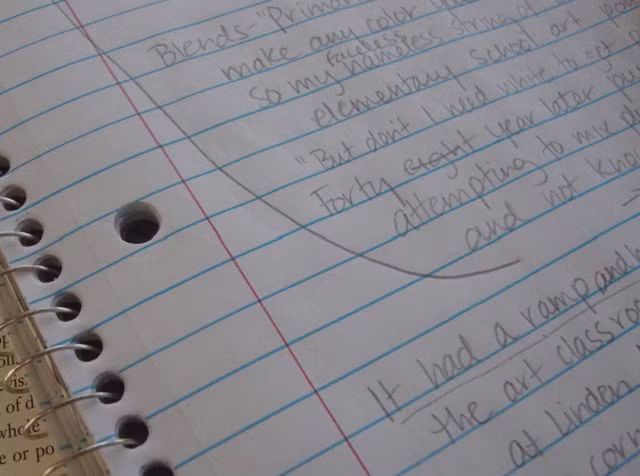 Blends - "Primar
make any color
faceless
so my nameless string of
elementary school art
"But don't I need white to get
Forty eight year later
attempting to mix
and not know
It had a ramp and
the art classroo
at linden
corn
of d
whole
e or po